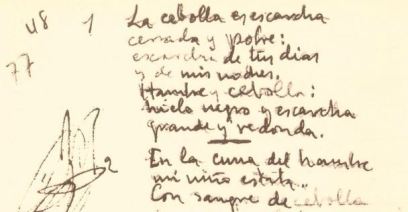 48 1 La cebolla es escarcha
77 cerrada y pobre:
escarcha de tus días
y de mis noches.
Hambre y cebolla:
hielo negro y escarcha
grande y redonda.
2 En la cuna del hambre
mi niño estaba.
Con sangre de cebolla